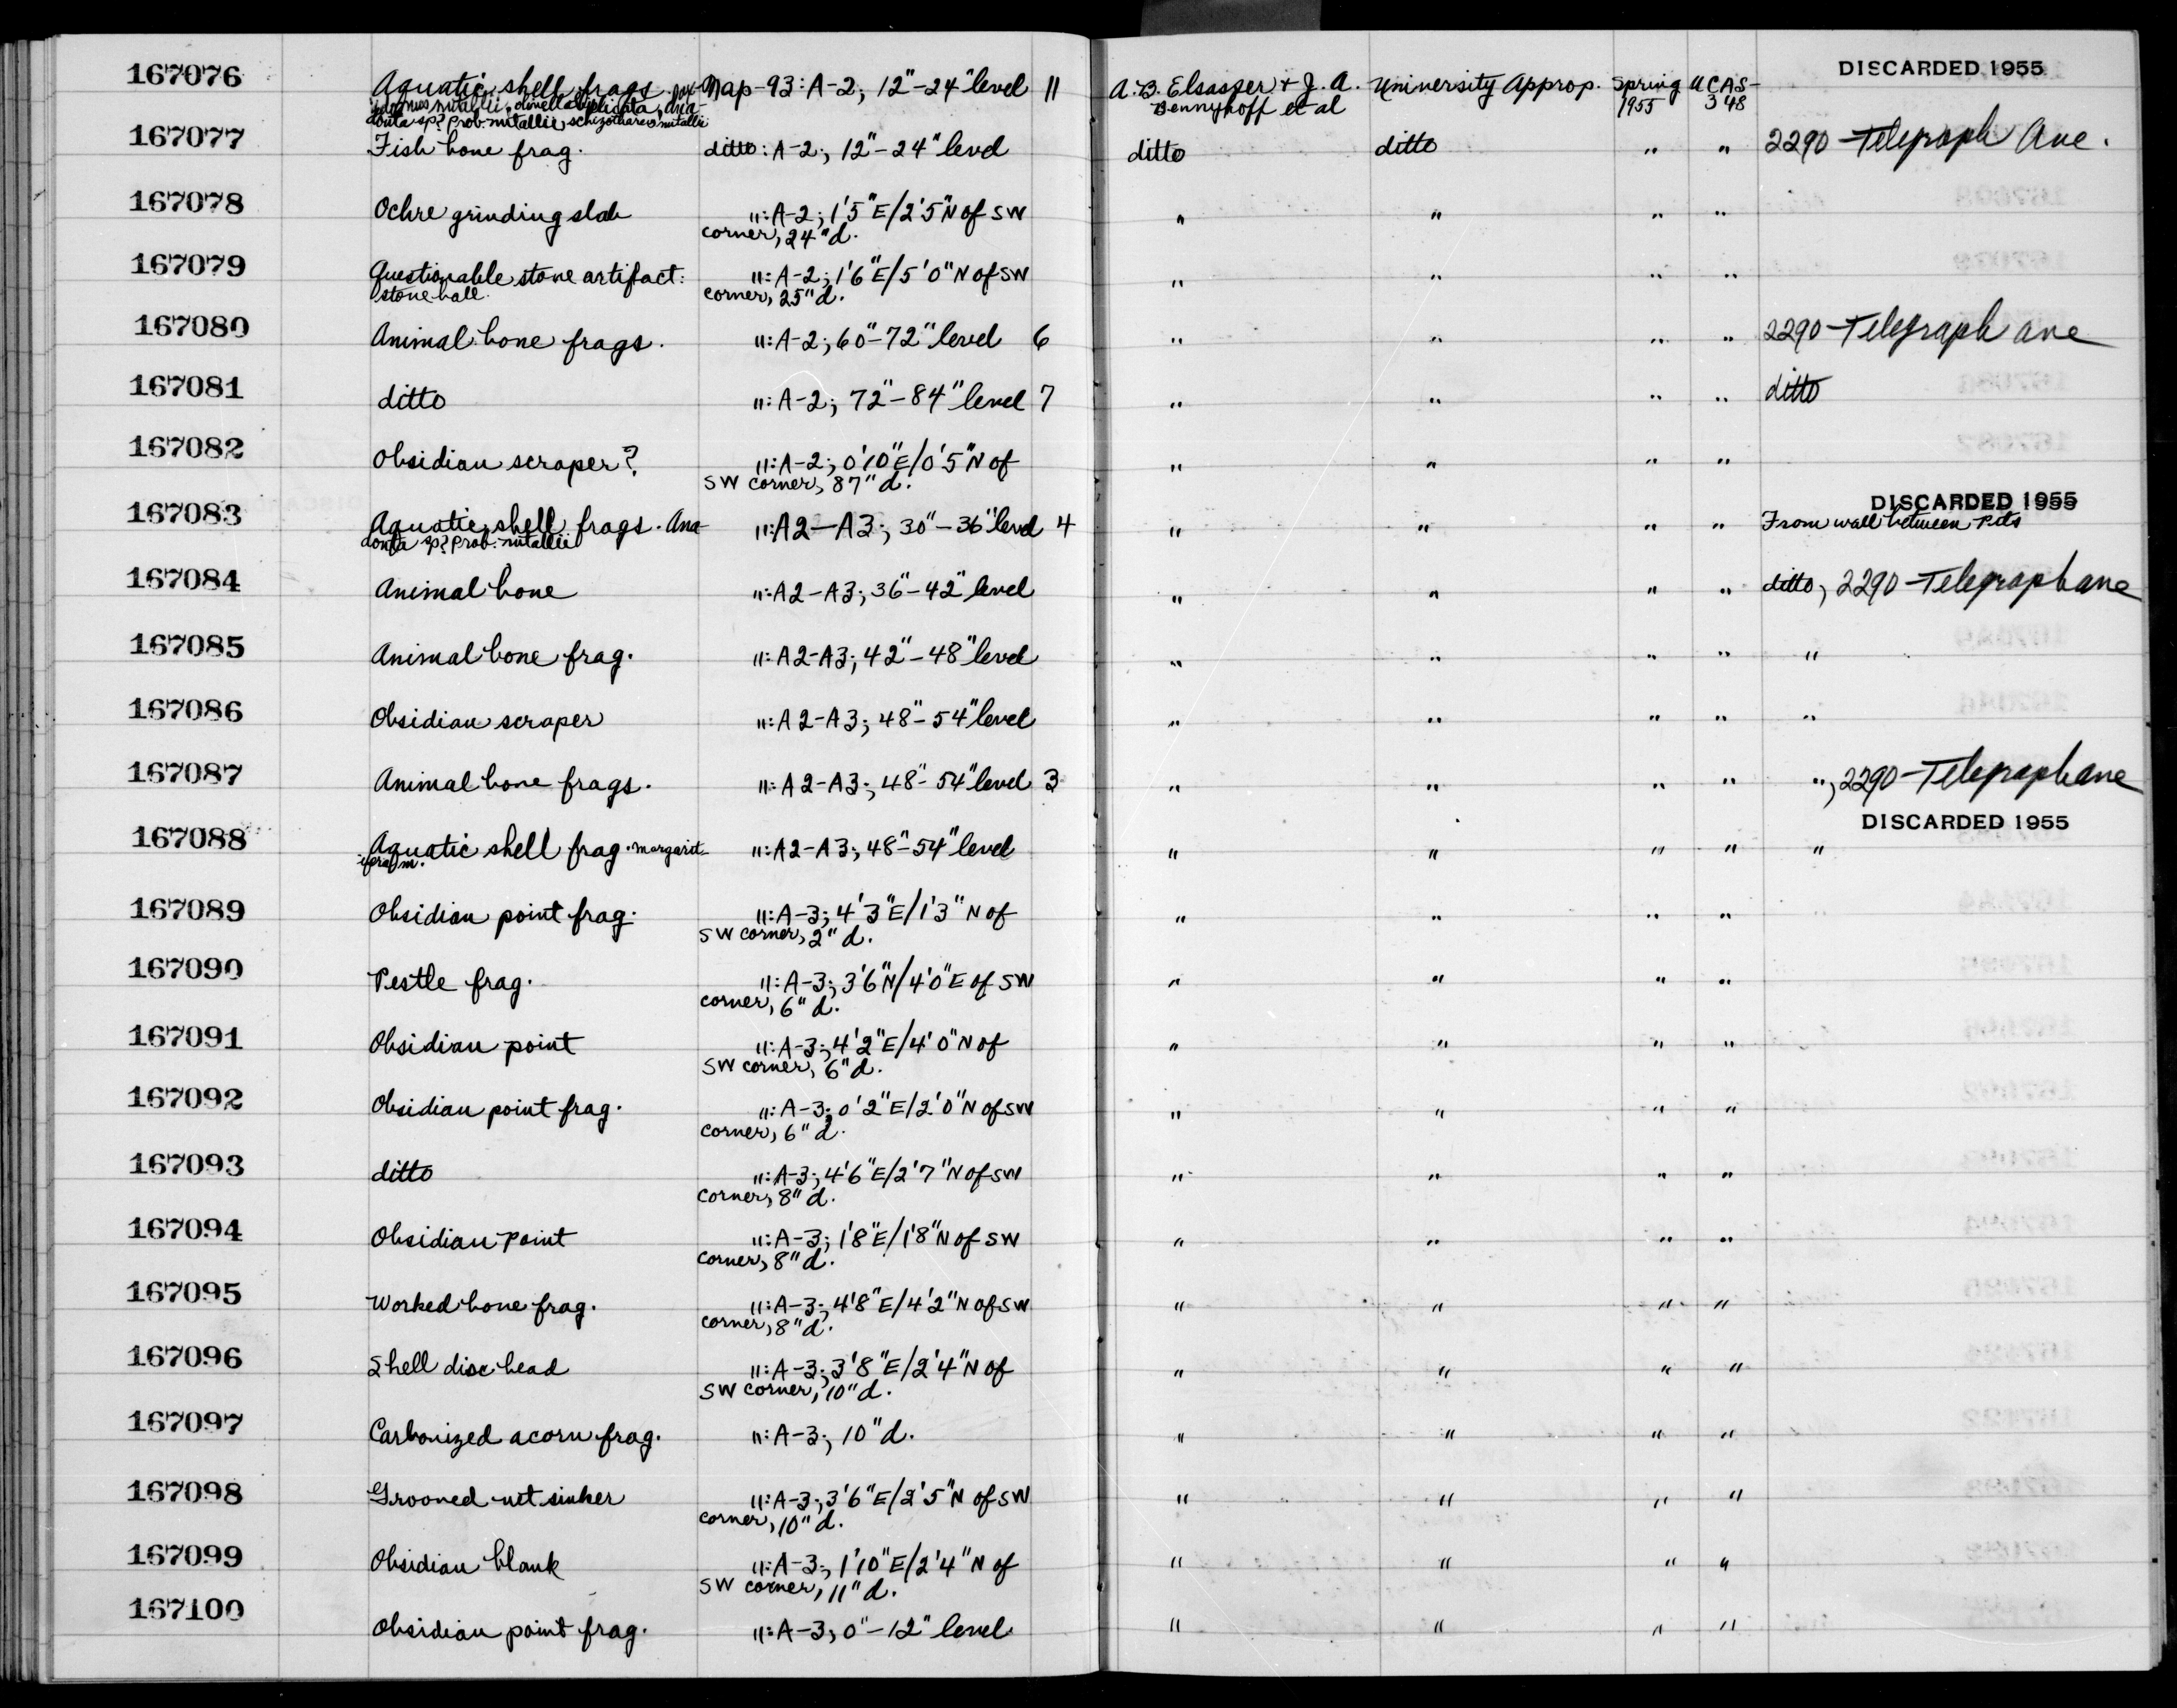 DISCARDED 1955
167076 Aquatic shell frags. Nap-93: A-2; 12"-24" level 11 A.B. Elsasser & J.A. University Approp. Spring UCAS-
nutallii, olivella biplicata, ana- Bennyhoff et al 1955 348
donta sp? prob. nutallii, schizothaerus nutallii
167077 Fish bone frag. ditto: A-2; 12"-24" level ditto ditto " " 2290 Telegraph Ave.
167078 Ochre grinding slab ": A-2; 1'5"E/2'5"N of SW " " " "
corner, 24"d.
167079 Questionable stone artifact: ": A-2; 1'6"E/5'0"N of SW " " " "
stone ball. corner, 25"d.
167080 Animal bone frags. ": A-2; 60"-72" level 6 " " " " 2290 Telegraph Ave
167081 ditto ": A-2; 72"-84" level 7 " " " " ditto
167082 Obsidian scraper? ": A-2; 0'10"E/0'5"N of " " " "
SW corner, 87"d.
DISCARDED 1955
167083 Aquatic shell frags. Ana- ": A2-A3; 30"-36" level 4 " " " " From wall between pits
donta sp? prob. nutallii
167084 Animal bone ": A2-A3; 36"-42" level " " " " ditto, 2290 Telegraph Ave
167085 Animal bone frag. ": A2-A3; 42"-48" level " " " " "
167086 Obsidian scraper ": A2-A3; 48"-54" level " " " " "
167087 Animal bone frags. ": A2-A3; 48"-54" level 3 " " " " ", 2290 Telegraph Ave
DISCARDED 1955
167088 Aquatic shell frag. Margarit- ": A2-A3; 48"-54" level " " " " "
ifera m.
167089 Obsidian point frag. ": A-3; 4'3"E/1'3"N of " " " "
SW corner, 2"d.
167090 Pestle frag. ": A-3; 3'6"N/4'0"E of SW " " " "
corner, 6"d.
167091 Obsidian point ": A-3; 4'2"E/4'0"N of " " " "
SW corner, 6"d.
167092 Obsidian point frag. ": A-3; 0'2"E/2'0"N of SW " " " "
corner, 6"d.
167093 ditto ": A-3; 4'6"E/2'7"N of SW " " " "
corner, 8"d.
167094 Obsidian point ": A-3; 1'8"E/1'8"N of SW " " " "
corner, 8"d.
167095 Worked bone frag. ": A-3; 4'8"E/4'2"N of SW " " " "
corner, 8"d.
167096 Shell disc bead ": A-3; 3'8"E/2'4"N of " " " "
SW corner, 10"d.
167097 Carbonized acorn frag. ": A-3; 10"d. " " " "
167098 Grooved net sinker ": A-3; 3'6"E/2'5"N of SW " " " "
corner, 10"d.
167099 Obsidian blank ": A-3; 1'10"E/2'4"N of " " " "
SW corner, 11"d.
167100 Obsidian point frag. ": A-3; 0"-12" level " " " "